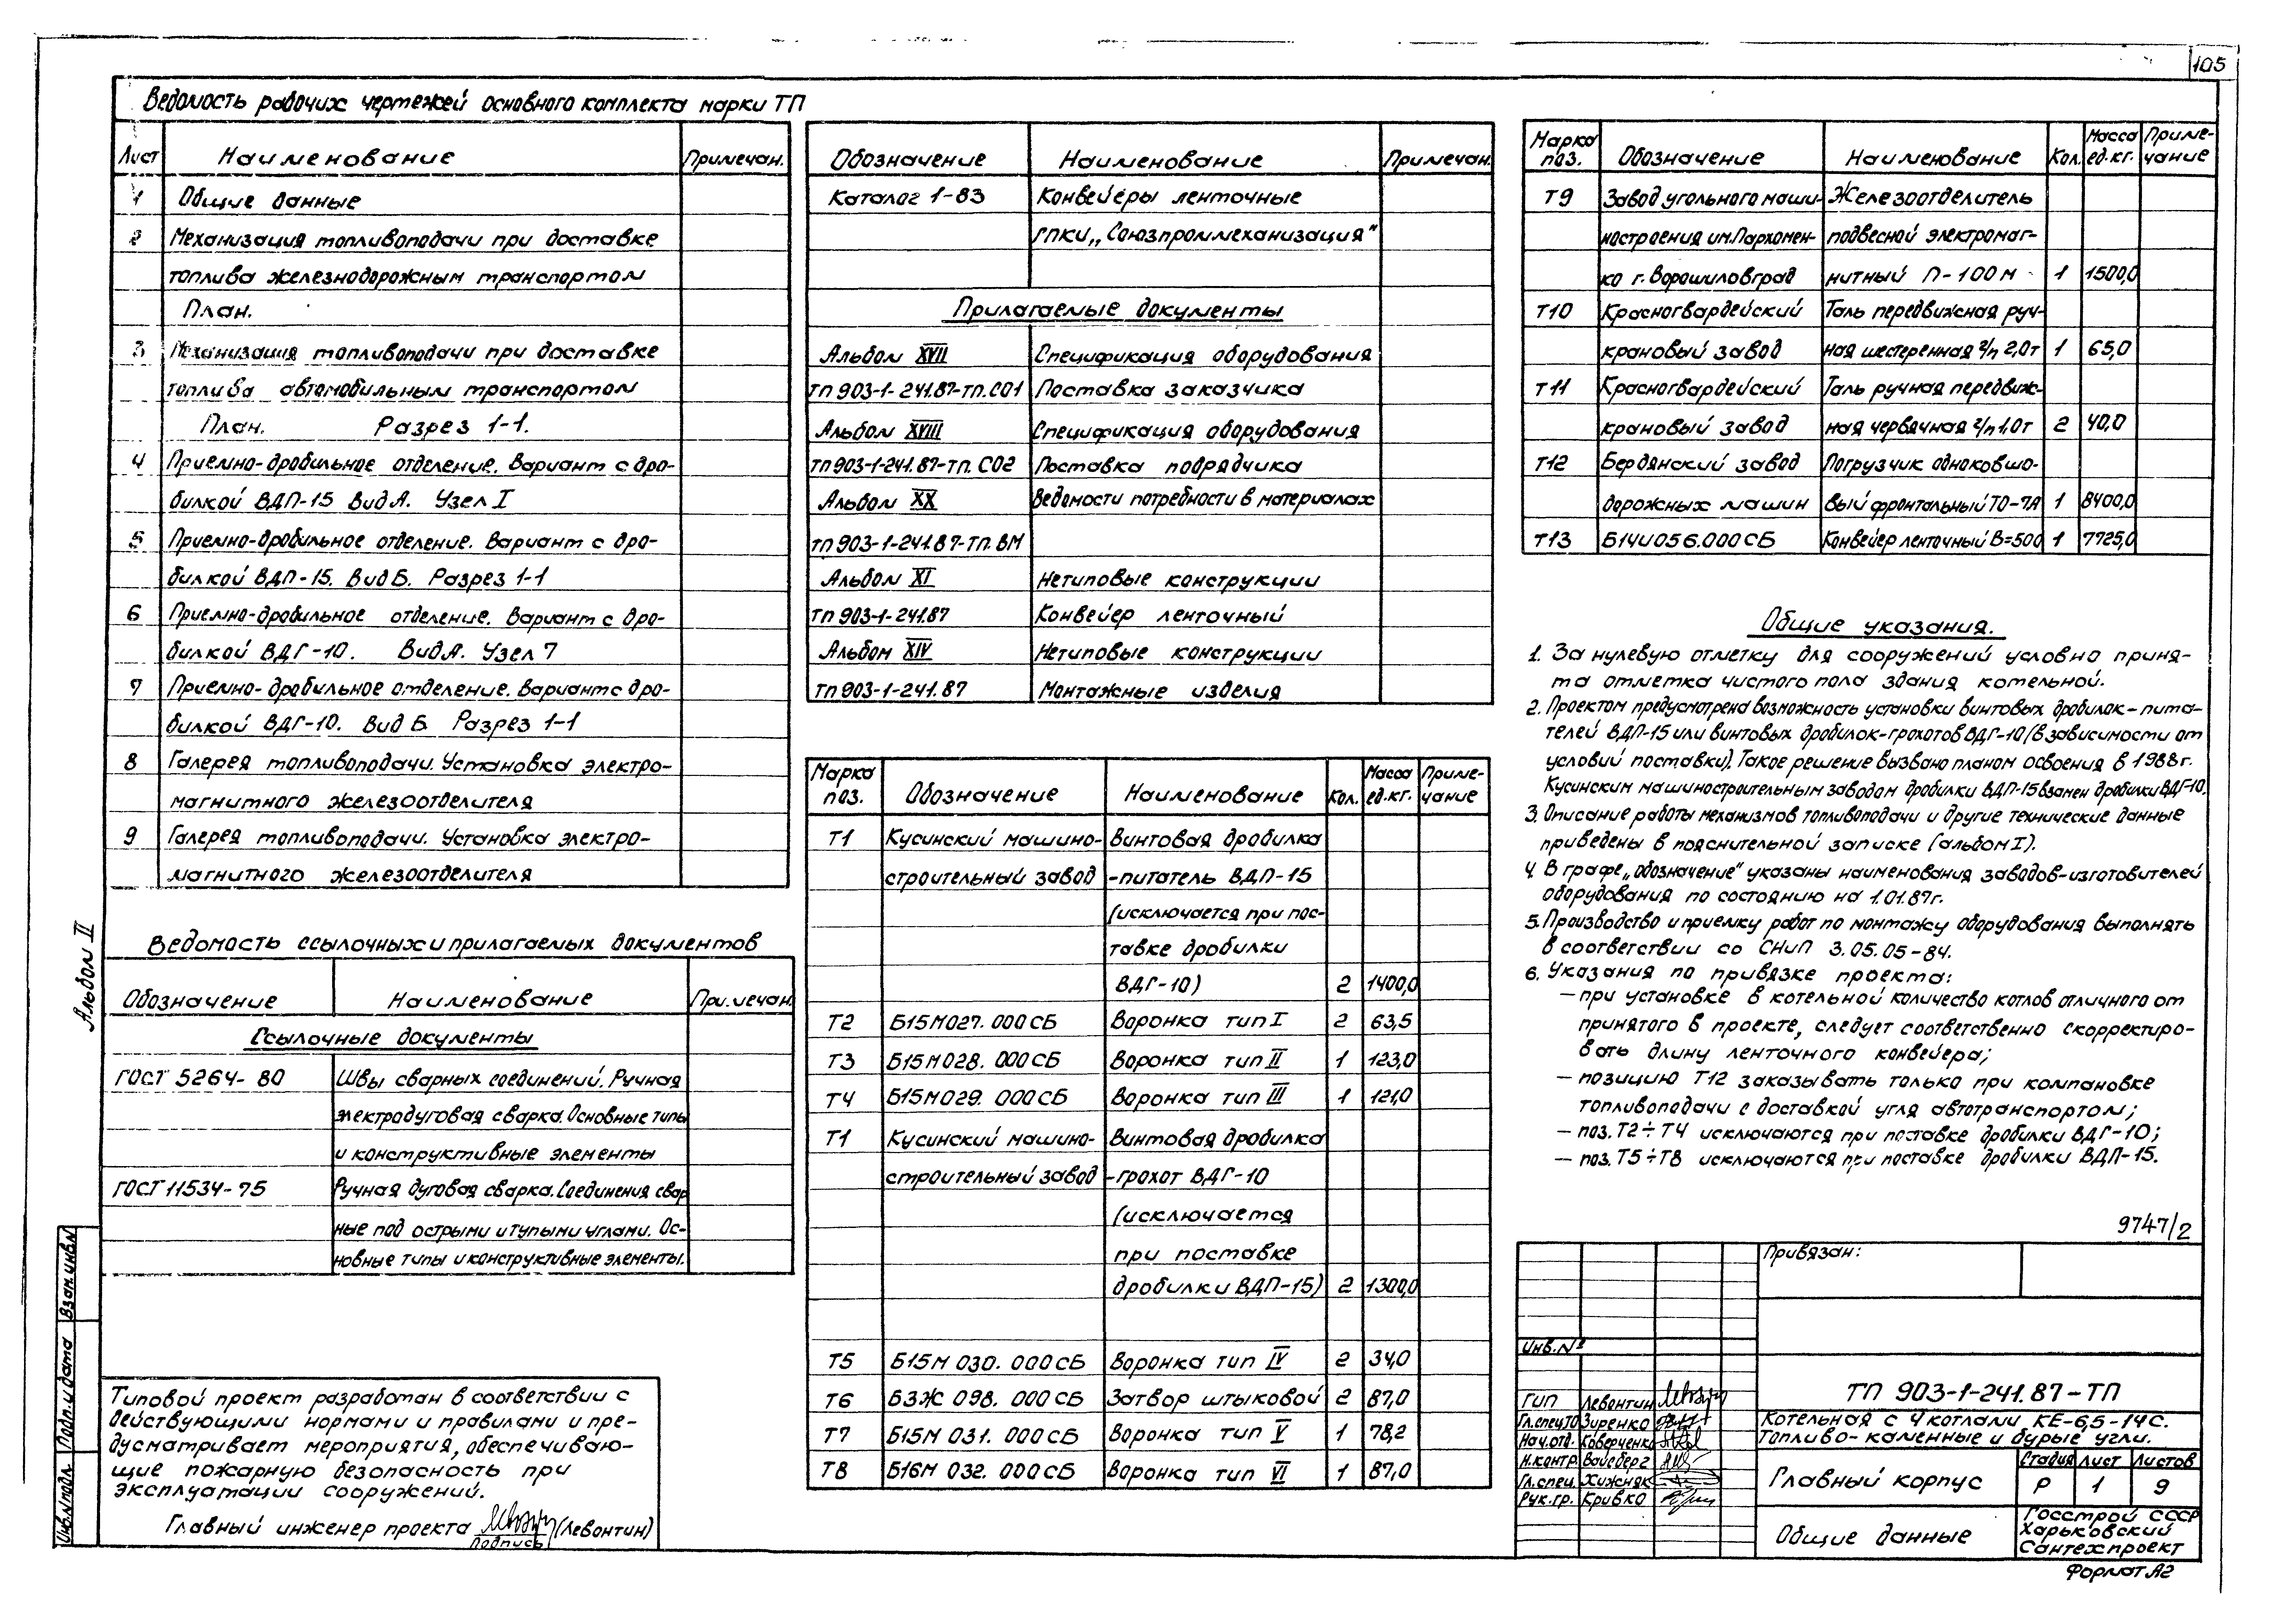 105
Ведомость рабочих чертежей основного комплекта марки ТП
Лист Наименование Примечан.
1 Общие данные
2 Механизация топливоподачи при доставке
топлива железнодорожным транспортом
План.
3 Механизация топливоподачи при доставке
топлива автомобильным транспортом
План. Разрез 1-1.
4 Приемно-дробильное отделение. Вариант с дро-
билкой ВДП-15 Вид А. Узел I
5 Приемно-дробильное отделение. Вариант с дро-
билкой ВДП-15. Вид Б. Разрез 1-1
6 Приемно-дробильное отделение. Вариант с дро-
билкой ВДГ-10. Вид А. Узел 7
7 Приемно-дробильное отделение. Вариант с дро-
билкой ВДГ-10. Вид Б Разрез 1-1
8 Галерея топливоподачи. Установка электро-
магнитного железоотделителя
9 Галерея топливоподачи. Установка электро-
магнитного железоотделителя
Ведомость ссылочных и прилагаемых документов
Обозначение Наименование Примечан.
Ссылочные документы
ГОСТ 5264-80 Швы сварных соединений. Ручная
электродуговая сварка. Основные типы
и конструктивные элементы
ГОСТ 11534-75 Ручная дуговая сварка. Соединения свар
ные под острыми и тупыми углами. Ос-
новные типы и конструктивные элементы.
Типовой проект разработан в соответствии с
действующими нормами и правилами и пре-
дусматривает мероприятия, обеспечиваю-
щие пожарную безопасность при
эксплуатации сооружений.
Главный инженер проекта (Левонтин)
Подпись
Альбом II
Взам.инв.N
Подп. и дата
Инв.N подл.
Обозначение Наименование Примечан.
Каталог 1-83 Конвейеры ленточные
ГПКИ „Союзпроммеханизация"
Прилагаемые документы
Альбом XVII Спецификация оборудования
ТП 903-1-241.87-ТП.СО1 Поставка заказчика
Альбом XVIII Спецификация оборудования
ТП 903-1-241.87-ТП.СО2 Поставка подрядчика
Альбом XX Ведомости потребности в материалах
ТП 903-1-241.87-ТП.ВМ
Альбом XI Нетиповые конструкции
ТП 903-1-241.87 Конвейер ленточный
Альбом XIV Нетиповые конструкции
ТП 903-1-241.87 Монтажные изделия
Марка поз. Обозначение Наименование Кол. Масса ед.кг. Приме-чание
Т1 Кусинский машино- Винтовая дробилка
строительный завод -питатель ВДП-15
(исключается при пос-
тавке дробилки
ВДГ-10) 2 1400,0
Т2 Б15М027.000СБ Воронка тип I 2 63,5
Т3 Б15М028.000СБ Воронка тип II 1 123,0
Т4 Б15М029.000СБ Воронка тип III 1 121,0
Т1 Кусинский машино- Винтовая дробилка
строительный завод -грохот ВДГ-10
(исключается
при поставке
дробилки ВДП-15) 2 1300,0
Т5 Б15М 030.000СБ Воронка тип IV 2 34,0
Т6 Б3Ж 098.000СБ Затвор штыковой 2 87,0
Т7 Б15М 031.000СБ Воронка тип V 1 78,2
Т8 Б16М 032.000СБ Воронка тип VI 1 87,0
Марка поз. Обозначение Наименование Кол. Масса ед.кг. Приме-чание
Т9 Завод угольного маши- Железоотделитель
ностроения им.Пархомен- подвесной электромаг-
ко г. Ворошиловград нитный П-100М 1 1500,0
Т10 Красногвардейский Таль передвижная руч-
крановый завод ная шестеренная г/п 2,0т 1 65,0
Т11 Красногвардейский Таль ручная передвиж-
крановый завод ная червячная г/п 1,0т 2 40,0
Т12 Бердянский завод Погрузчик одноковшо-
дорожных машин вый фронтальный ТО-7А 1 8400,0
Т13 Б14И056.000СБ Конвейер ленточный В=500 1 7725,0
Общие указания.
1. За нулевую отметку для сооружений условно приня-
та отметка чистого пола здания котельной.
2. Проектом предусмотрена возможность установки винтовых дробилок-пита-
телей ВДП-15 или винтовых дробилок-грохотов ВДГ-10 (в зависимости от
условий поставки). Такое решение вызвано планом освоения в 1988г.
Кусинским машиностроительным заводом дробилки ВДП-15 взамен дробилки ВДГ-10.
3. Описание работы механизмов топливоподачи и другие технические данные
приведены в пояснительной записке (альбом I).
4. В графе „обозначение" указаны наименования заводов-изготовителей
оборудования по состоянию на 1.01.87г.
5. Производство и приемку работ по монтажу оборудования выполнять
в соответствии со СНиП 3.05.05-84.
6. Указания по привязке проекта:
— при установке в котельной количество котлов отличного от
принятого в проекте, следует соответственно скорректиро-
вать длину ленточного конвейера;
— позицию Т12 заказывать только при компановке
топливоподачи с доставкой угля автотранспортом;
— поз. Т2÷Т4 исключаются при поставке дробилки ВДГ-10;
— поз. Т5÷Т8 исключаются при поставке дробилки ВДП-15.
9747/2
Привязан:
Инв.№
ГИП Левонтин
Гл.спец.ТО Зиренко
Нач.отд. Коверченко
Н.контр. Вайсберг
Гл.спец. Хижняк
Рук.гр. Кривко
ТП 903-1-241.87-ТП
Котельная с 4 котлами КЕ-6,5-14С.
Топливо-каменные и бурые угли.
Главный корпус
Стадия Лист Листов
Р 1 9
Общие данные
Госстрой СССР
Харьковский
Сантехпроект
Формат А2